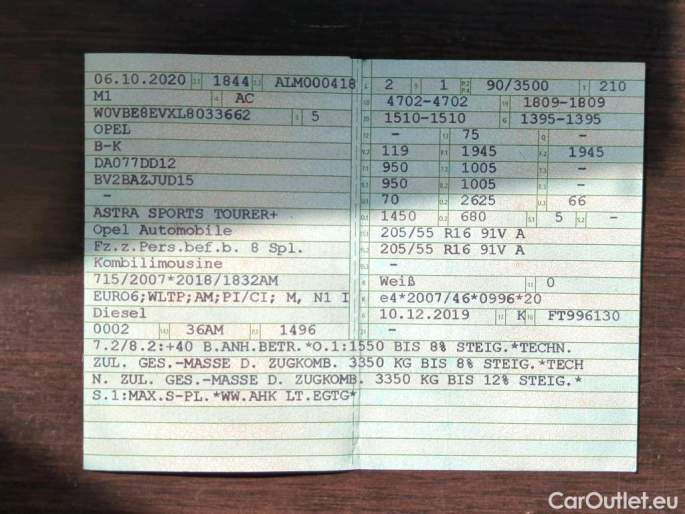 06.10.2020 1844 ALM000418
M1 AC
W0VBE8EVXL8033662 5
OPEL
B-K
DA077DD12
BV2BAZJUD15
-
ASTRA SPORTS TOURER+
Opel Automobile
Fz.z.Pers.bef.b. 8 Spl.
Kombilimousine
715/2007*2018/1832AM
EURO6;WLTP;AM;PI/CI; M, N1 I
Diesel
0002 36AM 1496
2 1 90/3500 210
4702-4702 1809-1809
1510-1510 1395-1395
- 75 -
119 1945 1945
950 1005 -
950 1005 -
70 2625 66
1450 680 5 -
205/55 R16 91V A
205/55 R16 91V A
-
Weiß 0
e4*2007/46*0996*20
10.12.2019 K FT996130
-
7.2/8.2:+40 B.ANH.BETR.*O.1:1550 BIS 8% STEIG.*TECHN.
ZUL. GES.-MASSE D. ZUGKOMB. 3350 KG BIS 8% STEIG.*TECH
N. ZUL. GES.-MASSE D. ZUGKOMB. 3350 KG BIS 12% STEIG.*
S.1:MAX.S-PL.*WW.AHK LT.EGTG*
CarOutlet.eu